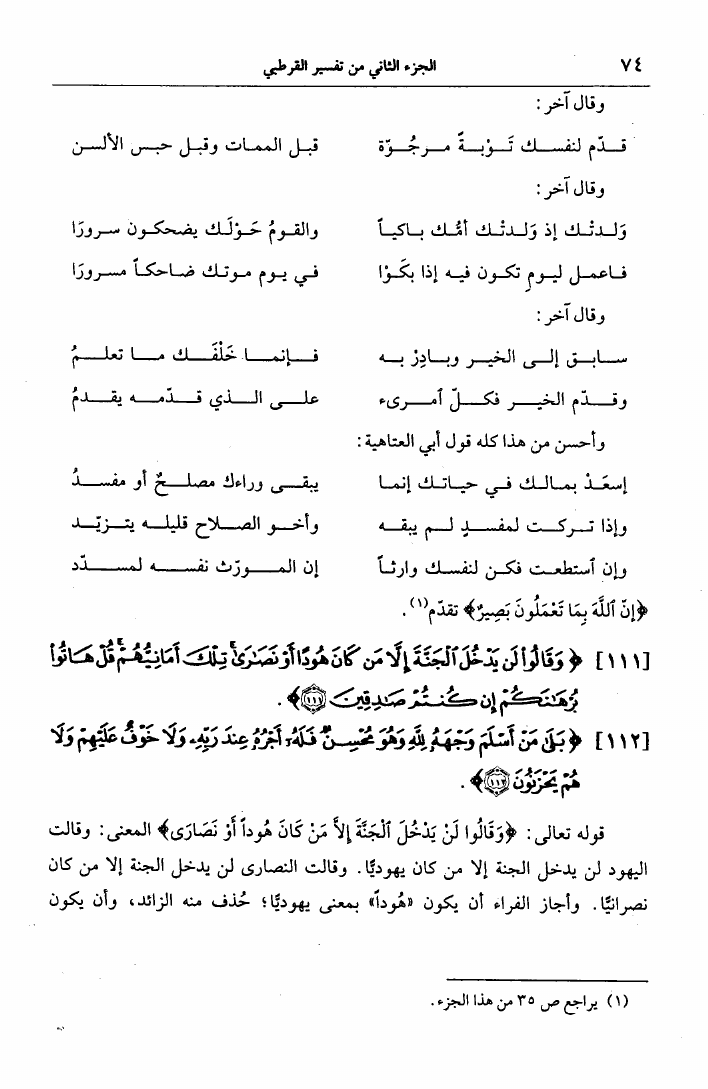 ٧٤ الجزء الثاني من تفسير القرطبي
وقال آخر:
قدّم لنفسك تَوْبةً مرجُوّة قبل الممات وقبل حبس الألسن
وقال آخر:
وَلدتْك إذ وَلدتْك أمّك باكياً والقومُ حَوْلَك يضحكون سرورَا
فاعمل ليومٍ تكون فيه إذا بكَوْا في يوم موتك ضاحكاً مسرورَا
وقال آخر:
سابق إلى الخير وبادِرْ به فإنما خَلْفَك ما تعلمُ
وقدّم الخير فكلّ ٱمرىء على الذي قدّمه يقدمُ
وأحسن من هذا كله قول أبي العتاهية:
إسعَدْ بمالك في حياتك إنما يبقى وراءك مصلحٌ أو مفسدُ
وإذا تركت لمفسدٍ لم يبقه وأخو الصلاح قليله يتزيّد
وإن ٱستطعت فكن لنفسك وارثاً إن المورّث نفسه لمسدّد
﴿إنّ ٱللَّهَ بِمَا تَعْمَلُونَ بَصِيرٌ﴾ تقدّم(١).
[١١١] ﴿وَقَالُوا۟ لَن يَدْخُلَ ٱلْجَنَّةَ إِلَّا مَن كَانَ هُودًا أَوْ نَصَٰرَىٰ ۗ تِلْكَ أَمَانِيُّهُمْ ۗ قُلْ هَاتُوا۟
بُرْهَٰنَكُمْ إِن كُنتُمْ صَٰدِقِينَ ١١١﴾.
[١١٢] ﴿بَلَىٰ مَنْ أَسْلَمَ وَجْهَهُۥ لِلَّهِ وَهُوَ مُحْسِنٌ فَلَهُۥٓ أَجْرُهُۥ عِندَ رَبِّهِۦ وَلَا خَوْفٌ عَلَيْهِمْ وَلَا
هُمْ يَحْزَنُونَ ١١٢﴾.
قوله تعالى: ﴿وَقَالُوا لَنْ يَدْخُلَ ٱلْجَنَّةَ إِلاَّ مَنْ كَانَ هُوداً أَوْ نَصَارَى﴾ المعنى: وقالت
اليهود لن يدخل الجنة إلا من كان يهوديًّا. وقالت النصارى لن يدخل الجنة إلا من كان
نصرانيًّا. وأجاز الفراء أن يكون «هُوداً» بمعنى يهوديًّا؛ حُذف منه الزائد، وأن يكون
(١) يراجع ص ٣٥ من هذا الجزء.